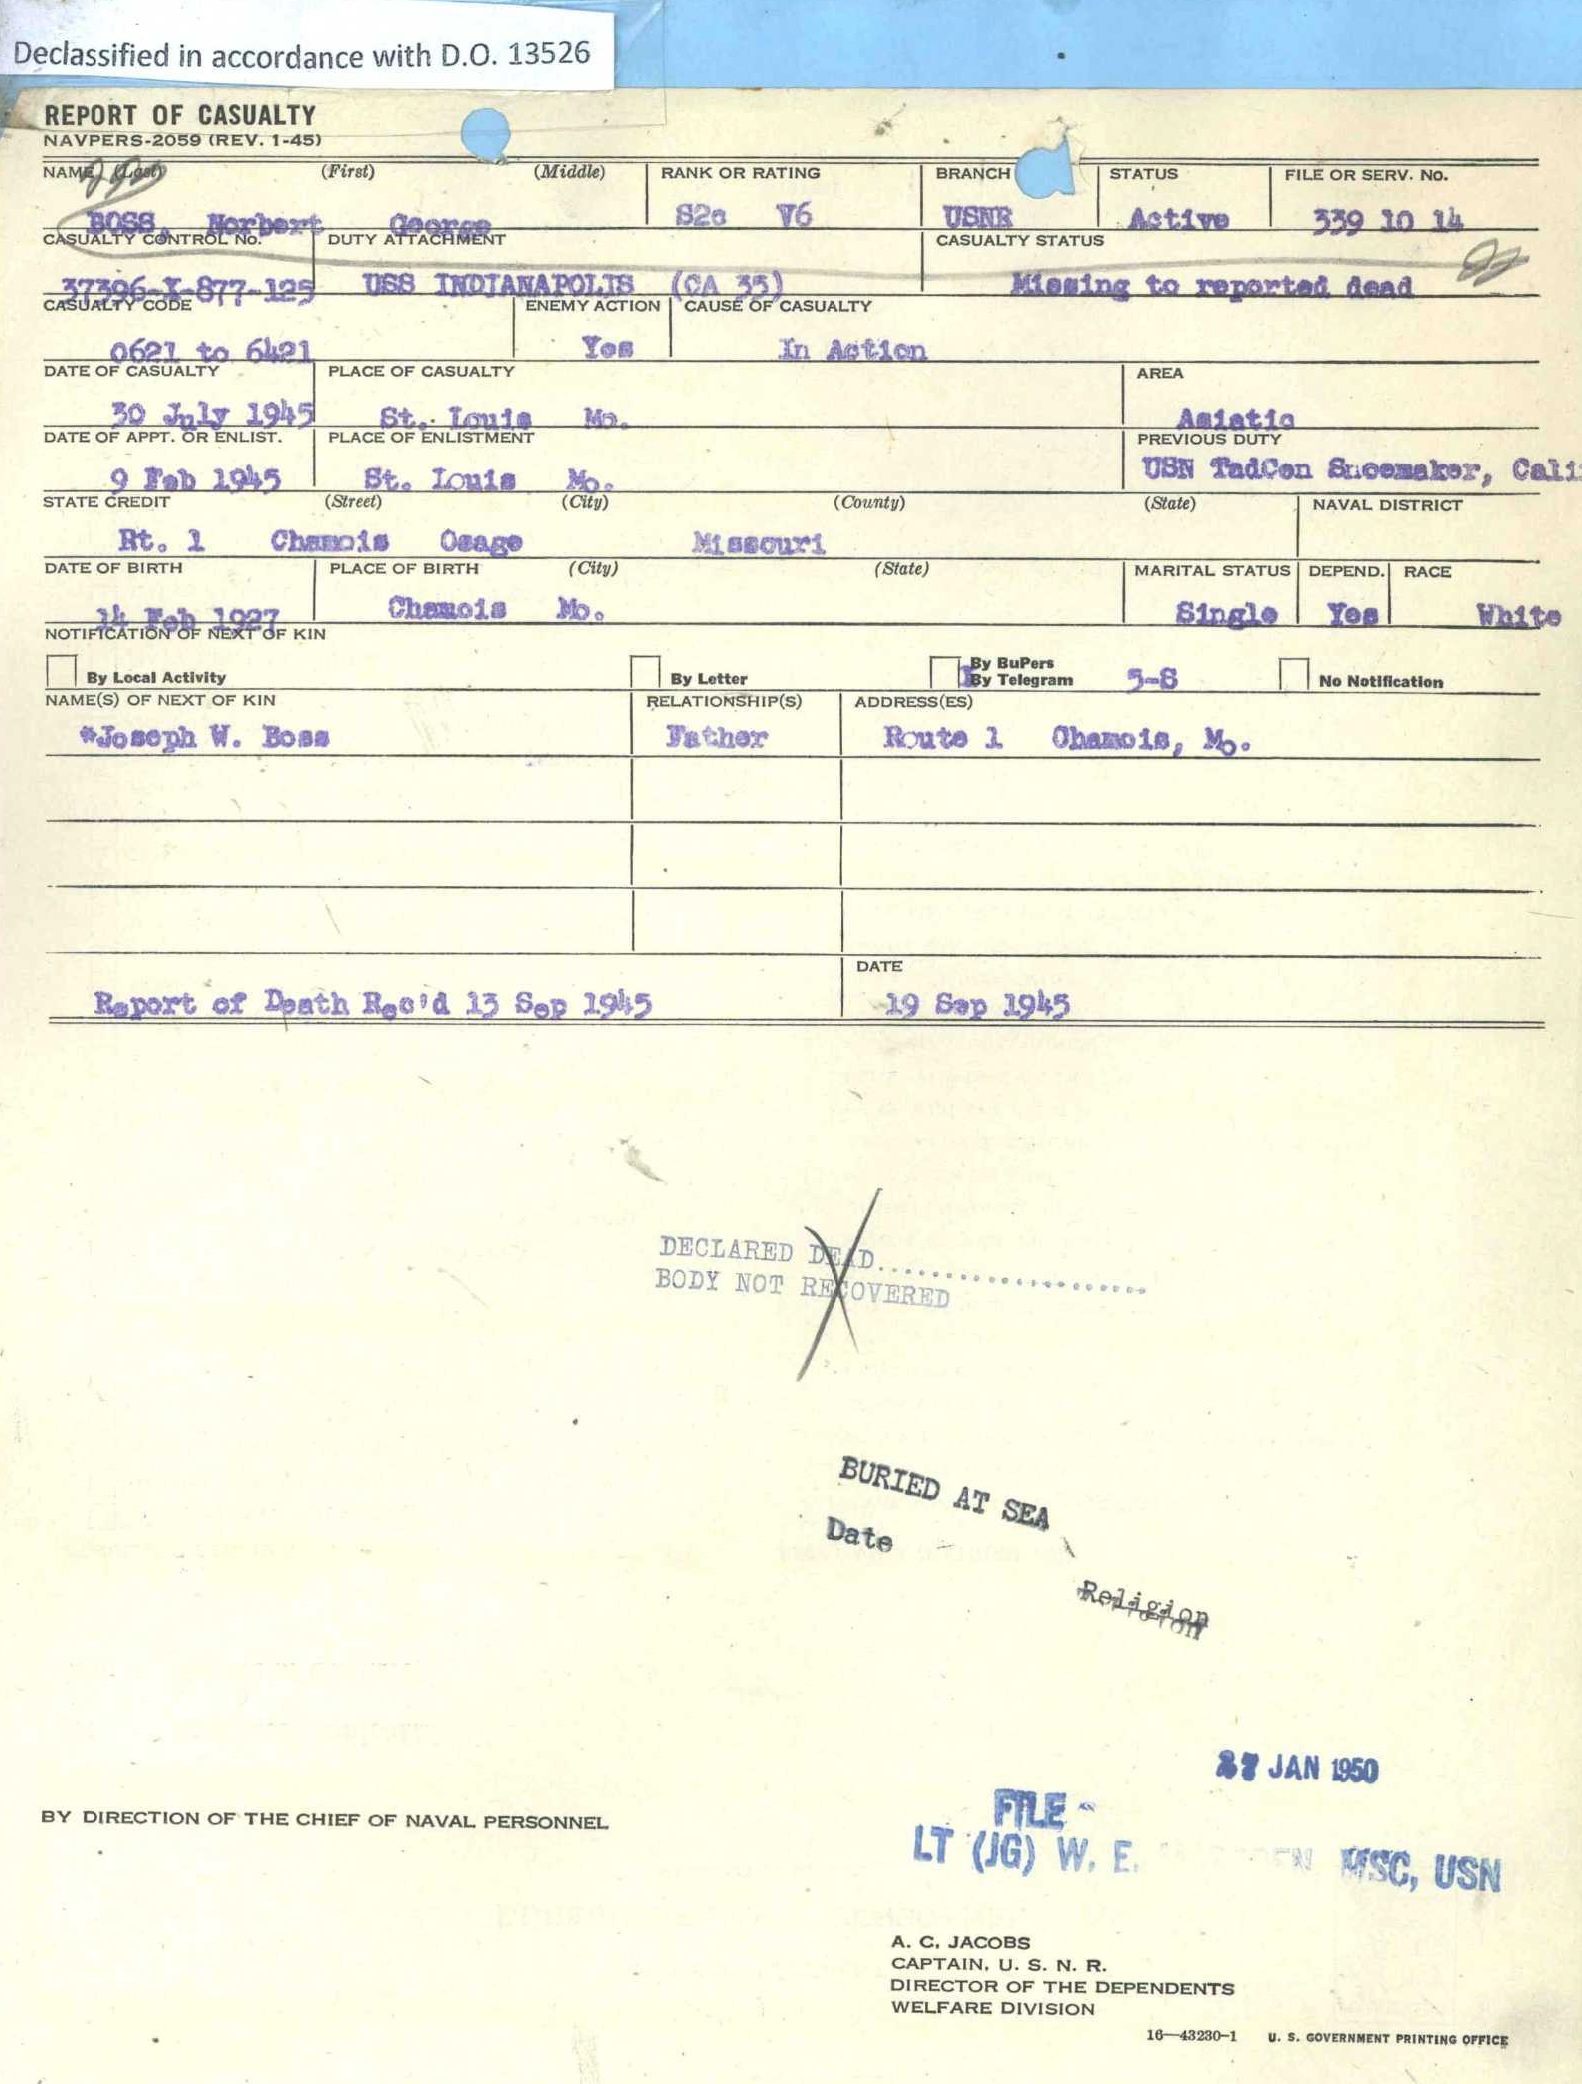 Declassified in accordance with D.O. 13526
REPORT OF CASUALTY
NAVPERS-2059 (REV. 1-45)
NAME (Last) (First) (Middle) RANK OR RATING BRANCH STATUS FILE OR SERV. No.
BOSS, Norbert George S2c V6 USNR Active 339 10 14
CASUALTY CONTROL No. DUTY ATTACHMENT CASUALTY STATUS
37396-X-877-125 USS INDIANAPOLIS (CA 35) Missing to reported dead
CASUALTY CODE ENEMY ACTION CAUSE OF CASUALTY
0621 to 6421 Yes In Action
DATE OF CASUALTY PLACE OF CASUALTY AREA
30 July 1945 St. Louis Mo. Asiatic
DATE OF APPT. OR ENLIST. PLACE OF ENLISTMENT PREVIOUS DUTY
9 Feb 1945 St. Louis Mo. USN TadCen Shoemaker, Cali
STATE CREDIT (Street) (City) (County) (State) NAVAL DISTRICT
Rt. 1 Chamois Osage Missouri
DATE OF BIRTH PLACE OF BIRTH (City) (State) MARITAL STATUS DEPEND. RACE
14 Feb 1927 Chamois Mo. Single Yes White
NOTIFICATION OF NEXT OF KIN
By Local Activity By Letter By BuPers
By Telegram 5-8 No Notification
NAME(S) OF NEXT OF KIN RELATIONSHIP(S) ADDRESS(ES)
*Joseph W. Boss Father Route 1 Chamois, Mo.
DATE
Report of Death Rec'd 13 Sep 1945 19 Sep 1945
DECLARED DEAD......................
BODY NOT RECOVERED
BURIED AT SEA
Date
Religion
JAN 1950
BY DIRECTION OF THE CHIEF OF NAVAL PERSONNEL
FILE -
LT (JG) W. E. MSC, USN
A. C. JACOBS
CAPTAIN, U. S. N. R.
DIRECTOR OF THE DEPENDENTS
WELFARE DIVISION
16—43230-1 U. S. GOVERNMENT PRINTING OFFICE